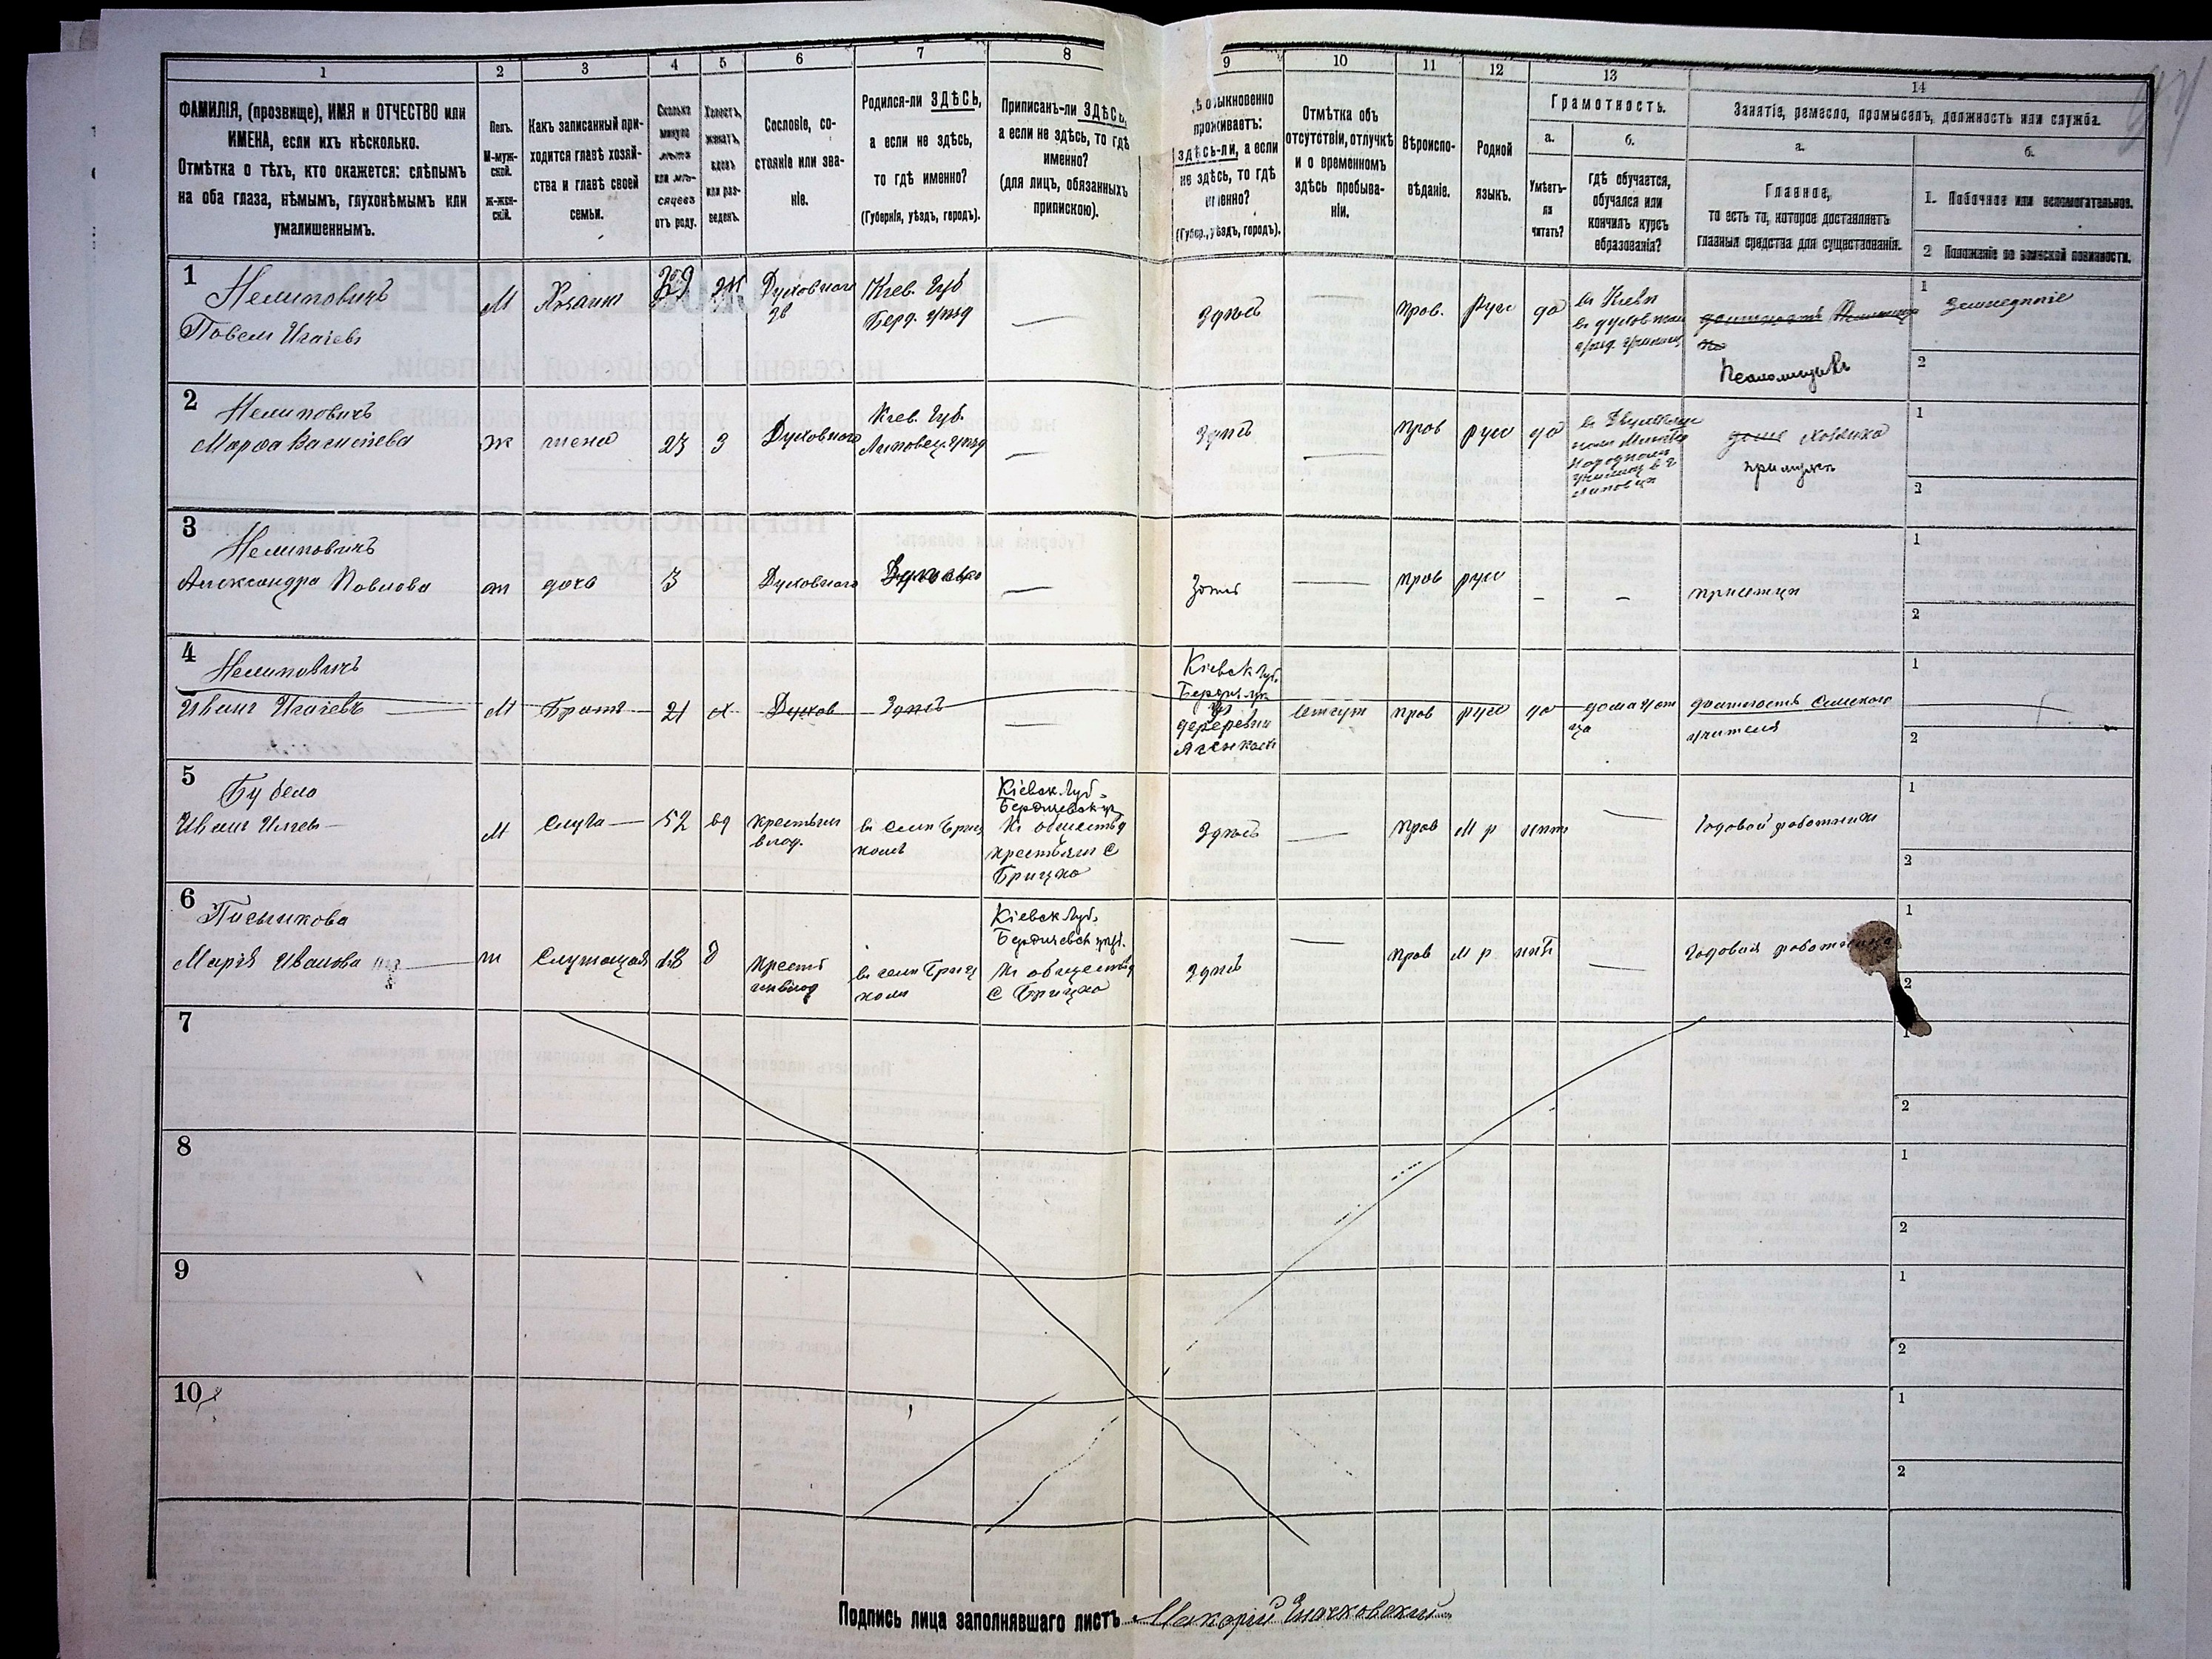 1 2 3 4 5 6 7 8 9 10 11 12 13 14
ФАМИЛІЯ, (прозвище), ИМЯ и ОТЧЕСТВО или
ИМЕНА, если ихъ нѣсколько.
Отмѣтка о тѣхъ, кто окажется: слѣпымъ
на оба глаза, нѣмымъ, глухонѣмымъ или
умалишеннымъ.
Полъ.
М-муж-
ской.
ж-жен-
скій.
Какъ записанный при-
ходится главѣ хозяй-
ства и главѣ своей
семьи.
Сколько
минуло
лѣтъ
или мѣ-
сяцевъ
отъ роду.
Холостъ,
женатъ,
вдовъ
или раз-
веденъ.
Сословіе, со-
стояніе или зва-
ніе.
Родился-ли ЗДѢСЬ,
а если не здѣсь,
то гдѣ именно?
(Губернія, уѣздъ, городъ).
Приписанъ-ли ЗДѢСЬ,
а если не здѣсь, то гдѣ
именно?
(для лицъ, обязанныхъ
припискою).
обыкновенно
проживаетъ:
здѣсь-ли, а если
не здѣсь, то гдѣ
именно?
(Губер., уѣздъ, городъ).
Отмѣтка объ
отсутствіи, отлучкѣ
и о временномъ
здѣсь пребыва-
ніи.
Вѣроиспо-
вѣданіе.
Родной
языкъ.
Грамотность.
а.
Умѣетъ-
ли
читать?
б.
гдѣ обучается,
обучался или
кончилъ курсъ
образованія?
Занятіе, ремесло, промыселъ, должность или служба.
а.
Главное,
то есть то, которое доставляетъ
главныя средства для существованія.
б.
1. Побочное или вспомогательное.
2 Положеніе по воинской повинности.
1
Нелиповичъ
Павелъ Игнатьевъ
М Хозяинъ 29 Ж Духовного
зв
Кіев. Губ
Берд. уѣзд
Здѣсь пров. русс да
въ Кіевѣ
Псаломщикъ
1 Земледѣліе
2
2
Нелиповичъ
Марфа Василіева
Ж жена 23 З Духовного
Кіев. Губ.
Липовец. уѣзд
Здѣсь пров русс да
хозяика
при мужѣ
1
2
3
Нелиповичъ
Александра Павлова
ж дочь 3 Духовного
Здѣсь пров русс
при отцѣ
1
2
4
Нелиповичъ
Иванъ Игнатьевъ
М Братъ 21 х Духов Здѣсь
Кіевск Губ.
деревни
пров русс да
должность Сельского
учителя
1
2
5
Бубело
М Слуга 52 вд крестьян
влад.
Кіевск. Губ.
Бердичевск уѣ
Къ обществу
крестьян с
Брицко
Здѣсь пров М р нѣт
Годовой работникъ
1
2
6
Марія Иванова
ж Служащая 18 д
Кіевск Губ.
Бердичевск уѣзд.
Къ обществу
с Брицко
Здѣсь пров М р нѣт
Годовая работница
1
2
7
1
2
8
1
2
9
1
2
10
1
2
Подпись лица заполнявшаго листъ Макарій